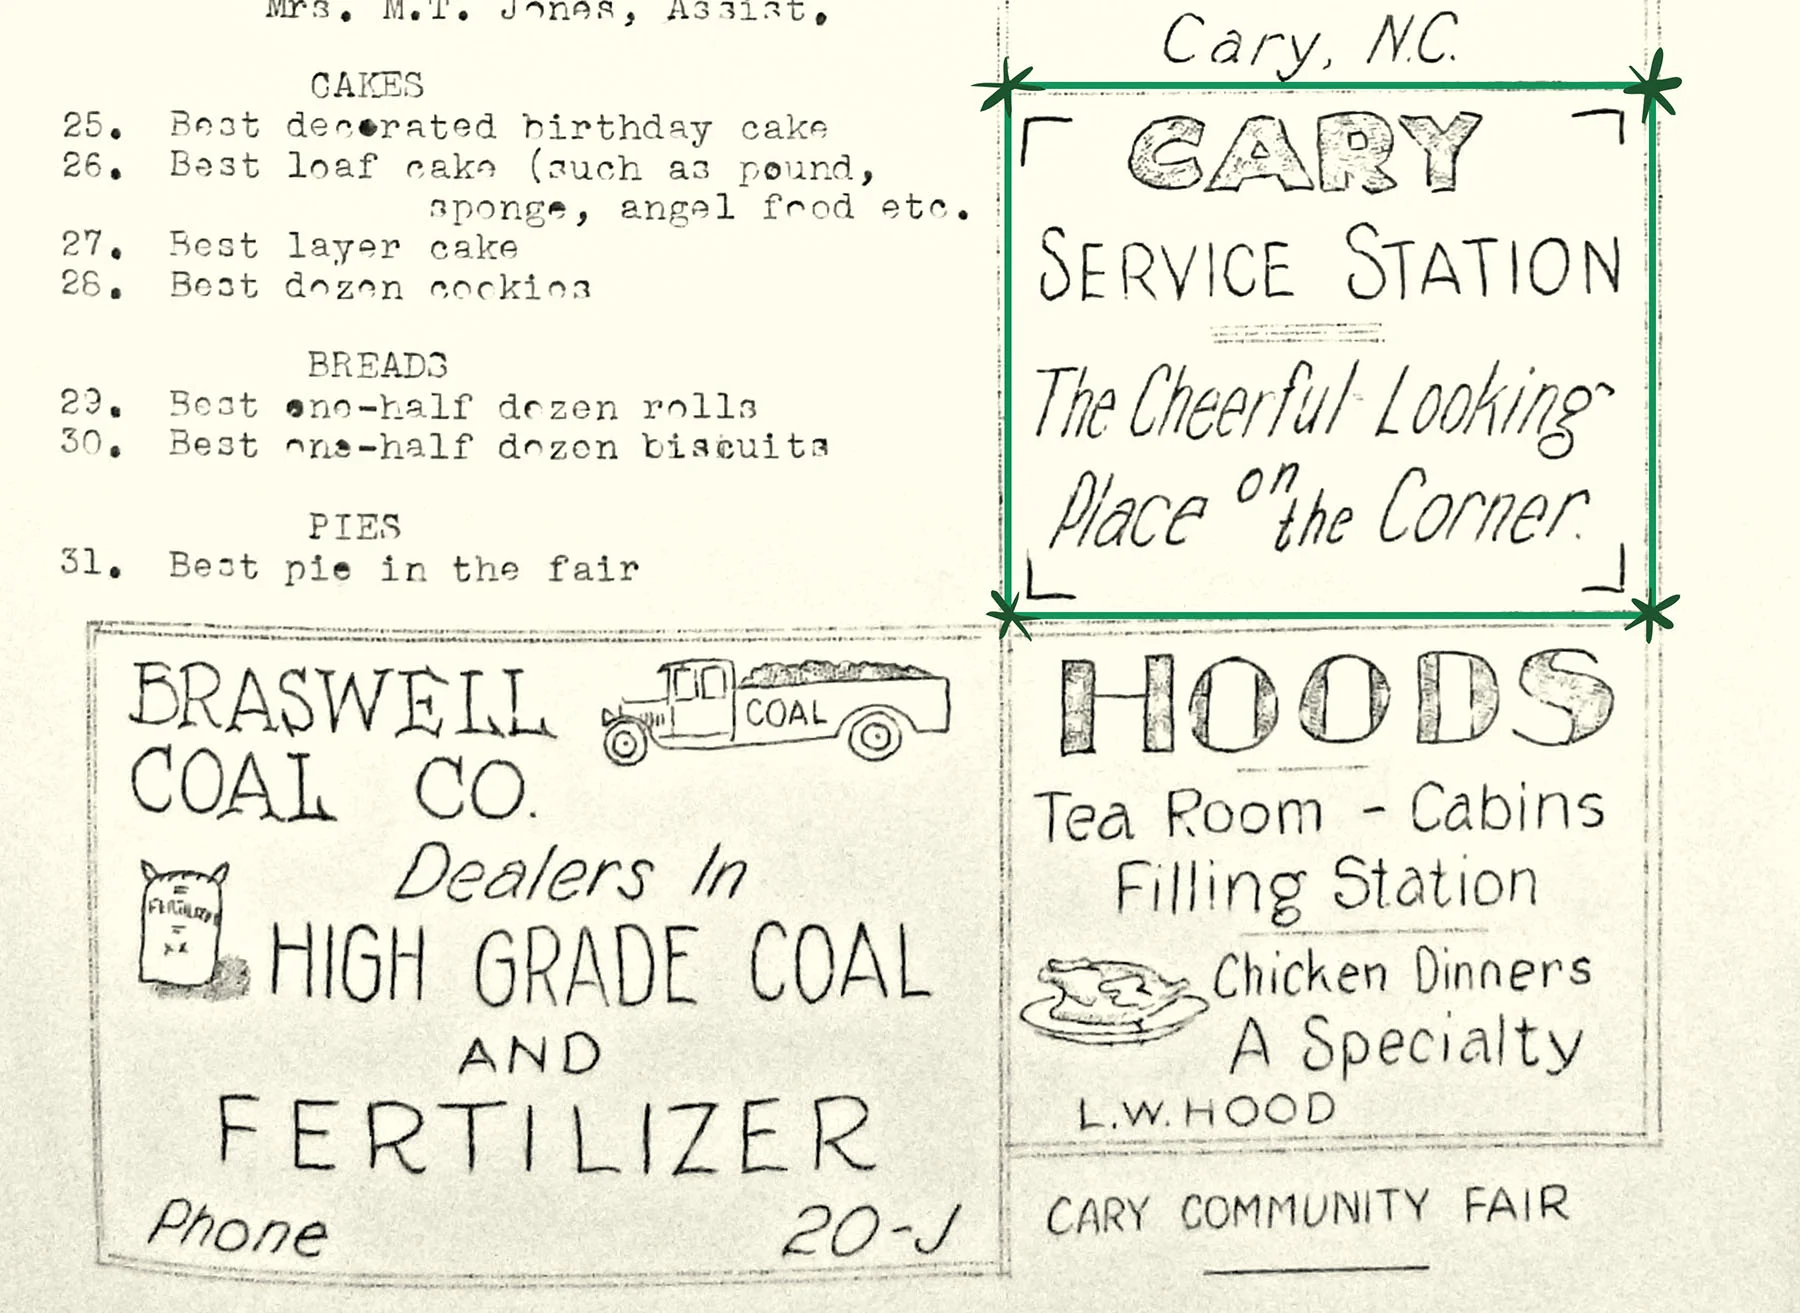 Mrs. M.T. Jones, Assist.
CAKES
25. Best decorated birthday cake
26. Best loaf cake (such as pound,
sponge, angel food etc.
27. Best layer cake
28. Best dozen cookies
BREADS
29. Best one-half dozen rolls
30. Best one-half dozen biscuits
PIES
31. Best pie in the fair
Cary, N.C.
CARY
SERVICE STATION
The Cheerful Looking
Place on the Corner.
BRASWELL
COAL CO.
COAL
Dealers In
FERTILIZER
HIGH GRADE COAL
AND
FERTILIZER
Phone 20-J
HOODS
Tea Room - Cabins
Filling Station
Chicken Dinners
A Specialty
L.W. HOOD
CARY COMMUNITY FAIR